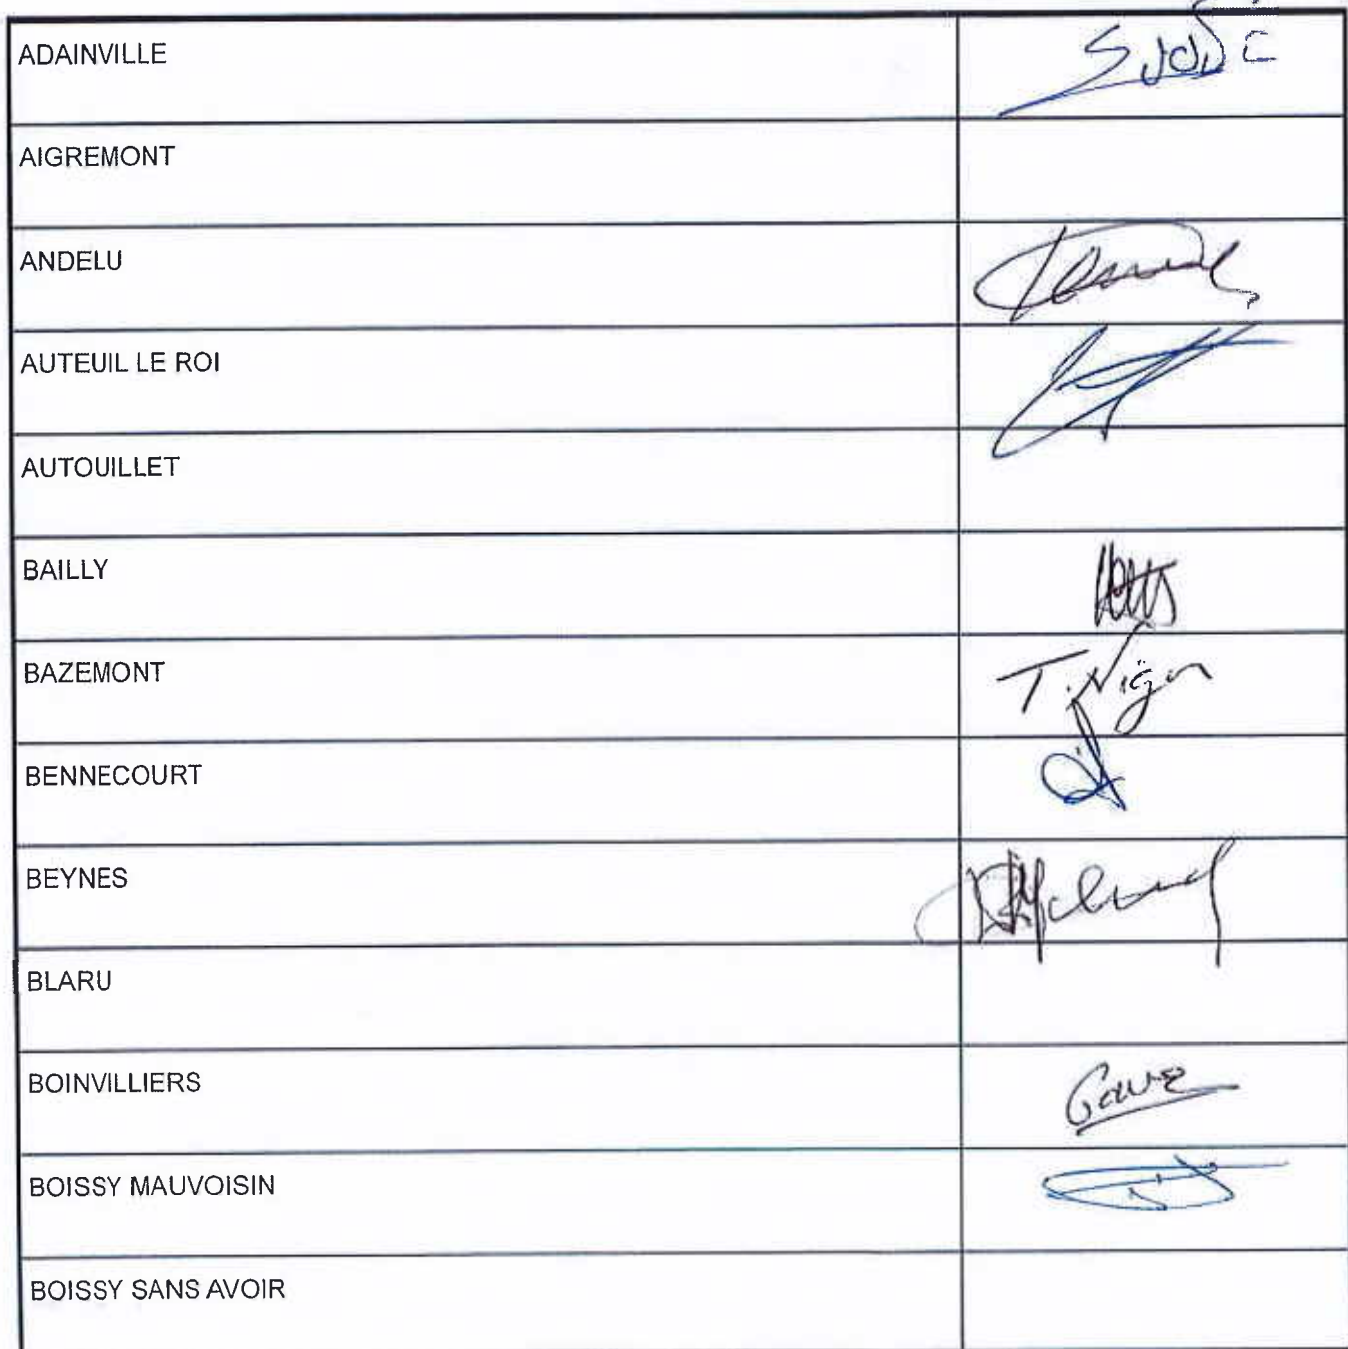 ADAINVILLE
AIGREMONT
ANDELU
AUTEUIL LE ROI
AUTOUILLET
BAILLY
BAZEMONT
BENNECOURT
BEYNES
BLARU
BOINVILLIERS
BOISSY MAUVOISIN
BOISSY SANS AVOIR